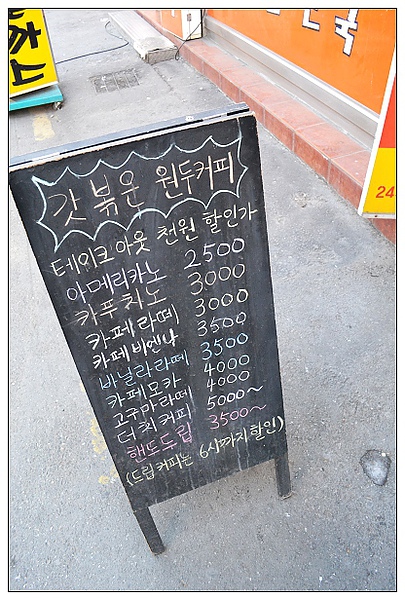 갓 볶운 원두커피
테이크아웃 천원 할인가
아메리카노 2500
카푸치노 3000
카페라떼 3000
카페비엔나 3500
바닐라라떼 3500
카페모카 4000
고구마라떼 4000
더치커피 5000~
핸드드립 3500~
(드립커피는 6시까지 할인)
24